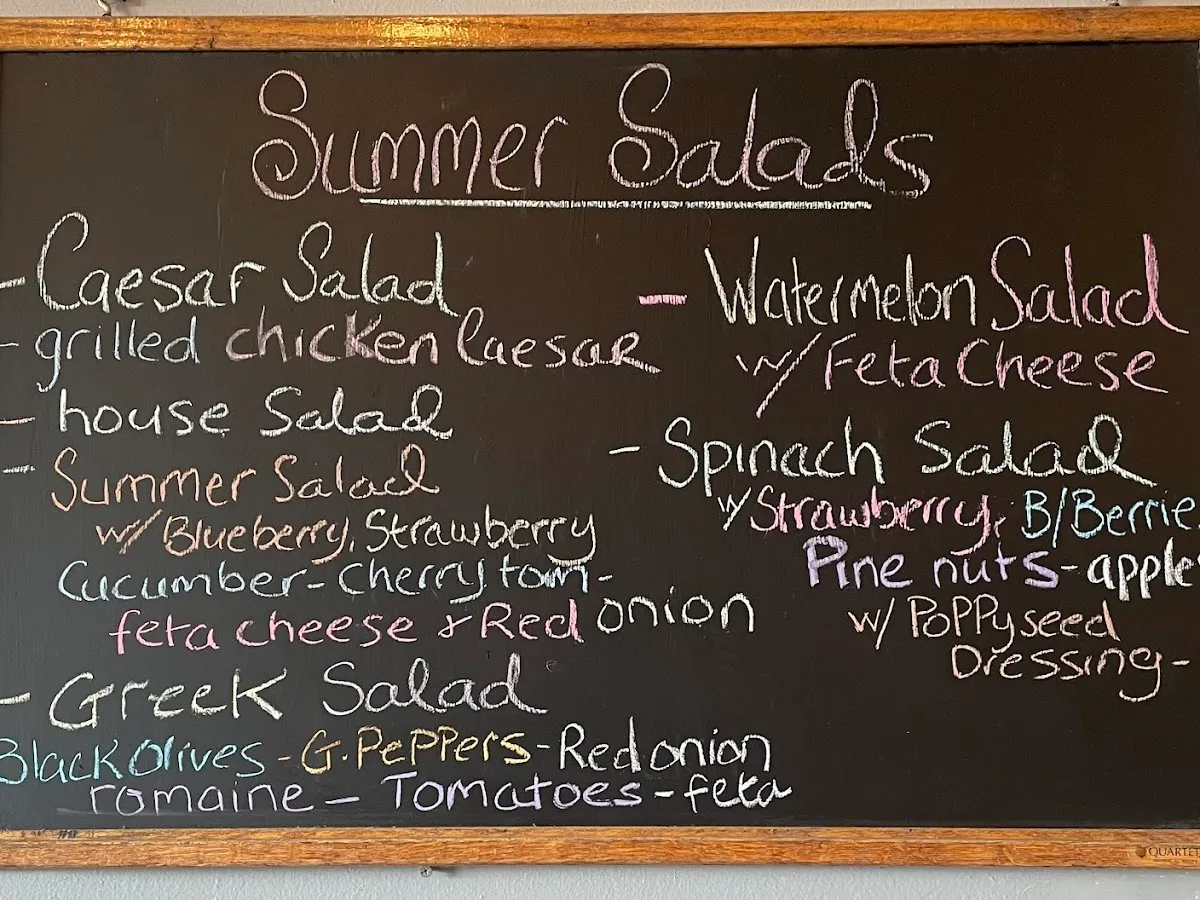 Summer Salads
- Caesar Salad
- grilled chicken Caesar
- house Salad
- Summer Salad
w/ Blueberry, Strawberry
Cucumber - Cherry tom -
feta cheese & Red onion
- Greek Salad
Black Olives - G. Peppers - Red onion
romaine - Tomatoes - feta
- Watermelon Salad
w/ Feta Cheese
- Spinach Salad
w/ Strawberry, B/Berrie
Pine nuts - apple
w/ Poppyseed
Dressing -
QUARTET